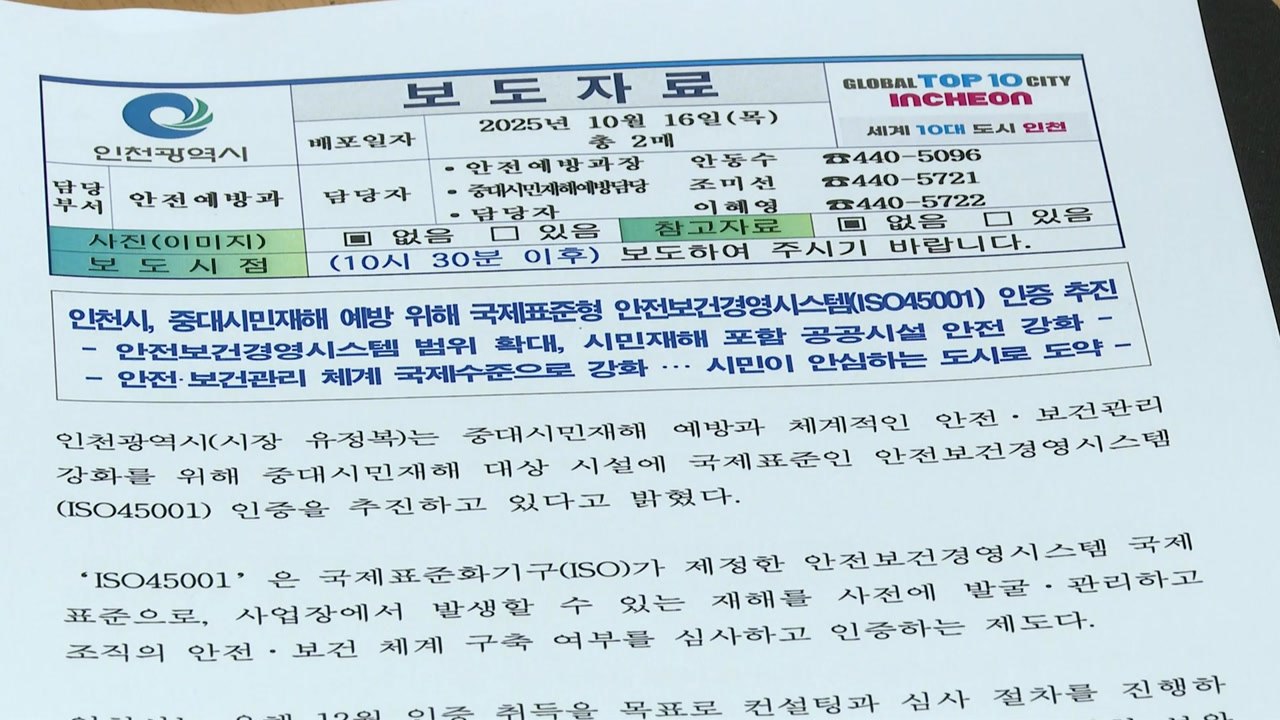 보 도 자 료
인천광역시
배포일자
2025년 10월 16일(목)
총 2매
GLOBAL TOP 10 CITY
INCHEON
세계 10대 도시 인천
담당
부서
안전예방과
담당자
• 안전예방과장 안동수 ☎440-5096
• 중대시민재해예방담당 조미선 ☎440-5721
• 담당자 이혜영 ☎440-5722
사진(이미지) ▣ 없음 □ 있음 참고자료 ▣ 없음 □ 있음
보 도 시 점 (10시 30분 이후) 보도하여 주시기 바랍니다.
인천시, 중대시민재해 예방 위해 국제표준형 안전보건경영시스템(ISO45001) 인증 추진
- 안전보건경영시스템 범위 확대, 시민재해 포함 공공시설 안전 강화 -
- 안전·보건관리 체계 국제수준으로 강화 … 시민이 안심하는 도시로 도약 -
인천광역시(시장 유정복)는 중대시민재해 예방과 체계적인 안전·보건관리
강화를 위해 중대시민재해 대상 시설에 국제표준인 안전보건경영시스템
(ISO45001) 인증을 추진하고 있다고 밝혔다.
‘ISO45001’ 은 국제표준화기구(ISO)가 제정한 안전보건경영시스템 국제
표준으로, 사업장에서 발생할 수 있는 재해를 사전에 발굴·관리하고
조직의 안전·보건 체계 구축 여부를 심사하고 인증하는 제도다.
12월 인증 취득을 목표로 컨설팅과 심사 절차를 진행하